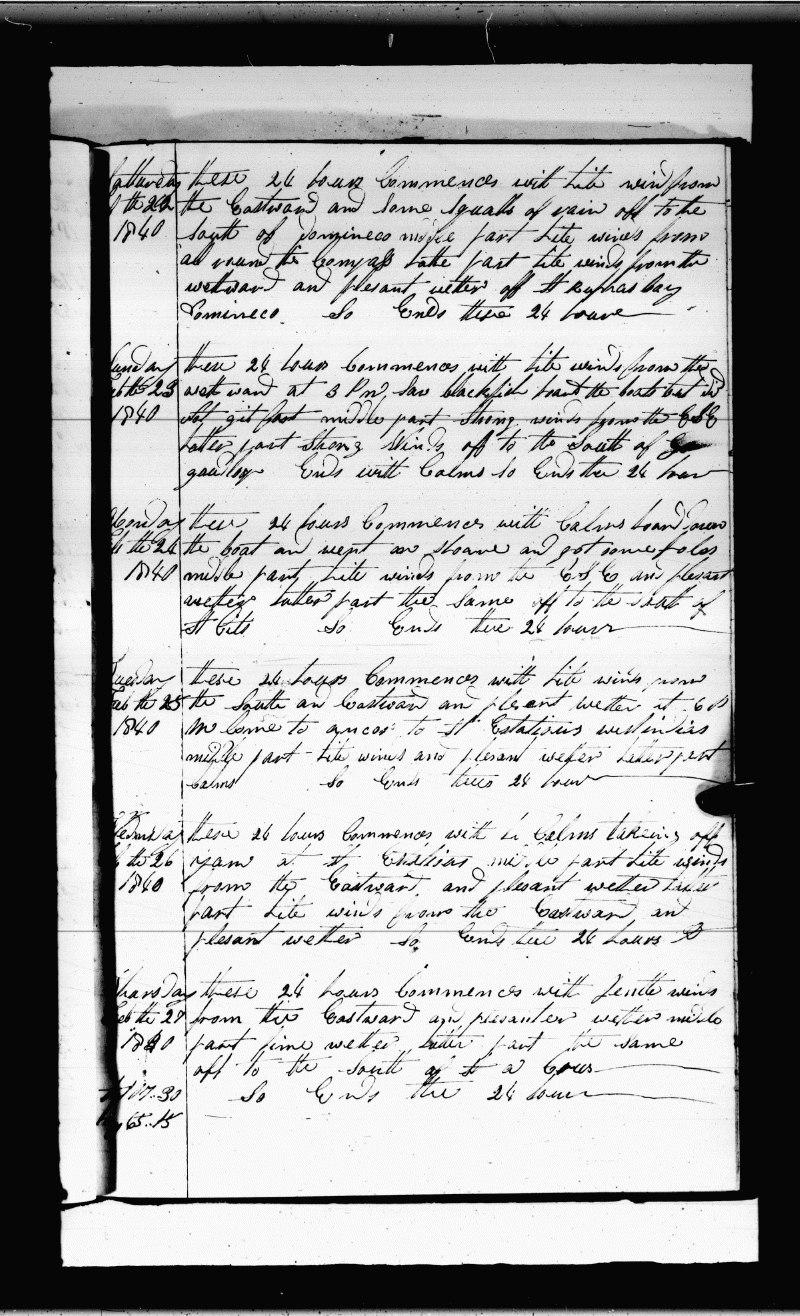 Satturday these 24 hours Commences with Lite wind from
Feb the 22 the Eastward and some squalls of rain off to the
1840 South of Domineco middle part Lite winds from
all round the Compass Latte part Lite winds from the
westward and plesant wetter off St bay
Domineco So Ends these 24 hours
Sunday these 24 hours Commences with Lite winds from the
Feb the 23 westward at 3 P m saw blackfish the boats but did
1840 not git fast middle part Strong winds from the ESE
Latter part strong Winds off to the South of
Ends with Calms So Ends these 24 hours
Monday these 24 hours Commences with Calms
Feb the 24 the boat and went on shoare and got some poles
1840 middle part Lite winds from the ESE and plesant
wetter Latter part the same off to the South of
St Cits So Ends these 24 hours
Tuesday these 24 hours Commences with Lite winds from
Feb the 25 the South and Eastward and plesent wetter at 6 P
1840 M Come to ancor to St Estatious westindias
middle part Lite winds and plesant wetter Latter part
Calms So Ends these 24 hours
Wednesday these 24 hours Commences with Calms takeing off
Feb the 26 at St middle part Lite winds
1840 from the Eastward and plesant wetter Latter
part Lite winds from the Eastward and
plesant wetter So Ends these 24 hours
Thursday these 24 hours Commences with Jentle winds
Feb the 27 from the Eastward and plesanter wetter middle
1840 part fine wetter Latter part the same
off to the South of St a Crus
So Ends these 24 hours
17..30
65..15